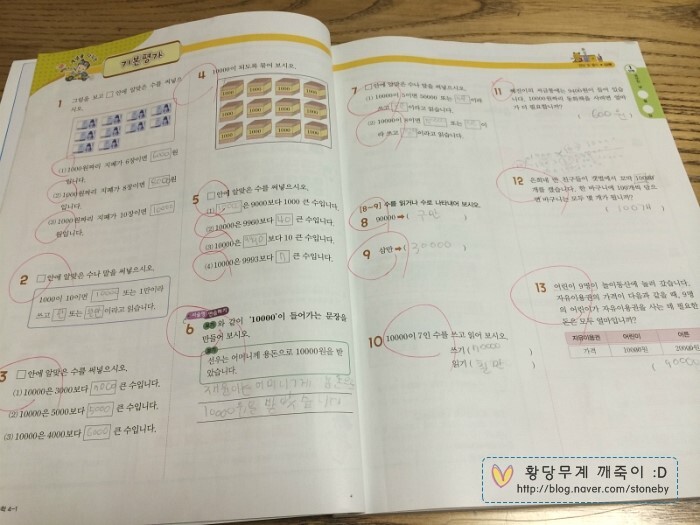 기본평가
1 그림을 보고 □ 안에 알맞은 수를 써넣으시오.
(1) 1000원짜리 지폐가 6장이면 6000원
입니다.
(2) 1000원짜리 지폐가 8장이면 8000원
입니다.
(3) 1000원짜리 지폐가 10장이면 10000
원입니다.
2 □ 안에 알맞은 수나 말을 써넣으시오.
1000이 10이면 10000 또는 1만이라
쓰고 만 또는 일만이라고 읽습니다.
3 □ 안에 알맞은 수를 써넣으시오.
(1) 10000은 3000보다 7000 큰 수입니다.
(2) 10000은 5000보다 5000 큰 수입니다.
(3) 10000은 4000보다 6000 큰 수입니다.
4 10000이 되도록 묶어 보시오.
1000 1000 1000 1000
1000 1000 1000 1000
1000 1000 1000 1000
5 □ 안에 알맞은 수를 써넣으시오.
(1) 은 9000보다 1000 큰 수입니다.
(2) 10000은 9960보다 40 큰 수입니다.
(3) 10000은 보다 10 큰 수입니다.
(4) 10000은 9993보다 7 큰 수입니다.
6 와 같이 '10000'이 들어가는 문장을
만들어 보시오.
선우는 어머니께 용돈으로 10000원을 받
았습니다.
어머니께
10000원을 받았습니다
7 □ 안에 알맞은 수나 말을 써넣으시오.
(1) 10000이 5이면 50000 또는 이라
쓰고 이라고 읽습니다.
(2) 10000이 8이면 또는 이
라 쓰고 이라고 읽습니다.
[8~9] 수를 읽거나 수로 나타내어 보시오.
8 90000 ➡ ( 구만 )
9 삼만 ➡ ( 30000 )
10 10000이 7인 수를 쓰고 읽어 보시오.
쓰기 ( 70000 )
읽기 ( 칠만 )
11 혜인이의 저금통에는 9400원이 들어 있습
니다. 10000원짜리 동화책을 사려면 얼마
가 더 필요합니까?
( 600원 )
12 은희네 반 친구들이 캤에서 모여 10000
개를 캤습니다. 한 바구니에 100개씩 담으
면 바구니는 모두 몇 개가 됩니까?
( 100개 )
13 어린이 9명이 놀이동산에 놀러 갔습니다.
자유이용권의 가격이 다음과 같을 때, 9명
의 어린이가 자유이용권을 사는 데 필요한
돈은 모두 얼마입니까?
자유이용권 어린이 어른
가격 10000원 20000원
황당무계 깨죽이 :D
http://blog.naver.com/stoneby